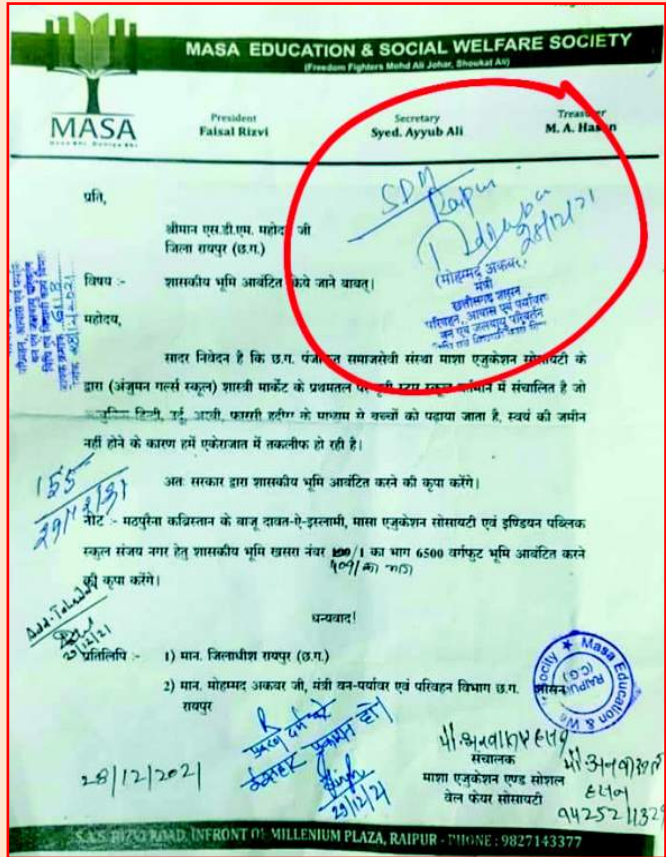 MASA EDUCATION & SOCIAL WELFARE SOCIETY
(Freedom Fighters Mohd Ali Johar, Shoukat Ali)
MASA
President
Faisal Rizvi
Secretary
Syed. Ayyub Ali
Treasurer
M. A. Hasan
SDM
Raipur
28/12/21
(मोहम्मद अकबर)
मंत्री
छत्तीसगढ़ शासन
परिवहन, आवास एवं पर्यावरण
वन एवं जलवायु परिवर्तन
प्रति,
श्रीमान एस.डी.एम. महोदय जी
जिला रायपुर (छ.ग.)
विषय :- शासकीय भूमि आबंटित किये जाने बाबत्।
महोदय,
सादर निवेदन है कि छ.ग. पंजीकृत समाजसेवी संस्था माशा एजुकेशन सोसायटी के
द्वारा (अंजुमन गर्ल्स स्कूल) शास्त्री मार्केट के प्रथमतल पर स्कूल वर्तमान में संचालित है जो
हिन्दी, उर्दू, अरबी, फारसी के माध्यम से बच्चों को पढ़ाया जाता है, स्वयं की जमीन
नहीं होने के कारण हमें एकेराजात में तकलीफ हो रही है।
155
29/12/21
अतः सरकार द्वारा शासकीय भूमि आबंटित करने की कृपा करेंगे।
नोट :- मठपुरैना कब्रिस्तान के बाजू दावत-ऐ-इस्लामी, मासा एजुकेशन सोसायटी एवं इण्डियन पब्लिक
स्कूल संजय नगर हेतु शासकीय भूमि खसरा नंबर /1 का भाग 6500 वर्गफुट भूमि आबंटित करने
409/का भाग
की कृपा करेंगे।
धन्यवाद!
Add. Tahsildar
29/12/21
प्रतिलिपि :- 1) मान. जिलाधीश रायपुर (छ.ग.)
2) मान. मोहम्मद अकबर जी, मंत्री वन-पर्यावर एवं परिवहन विभाग छ.ग. शासन
रायपुर
Masa Education & We Society
RAIPUR
(CG)
28/12/2021
29/12/21
संचालक
माशा एजुकेशन एण्ड सोशल
वेल फेयर सोसायटी
हसन
S.A.S. RIZVI ROAD, INFRONT OF MILLENIUM PLAZA, RAIPUR - PHONE : 9827143377